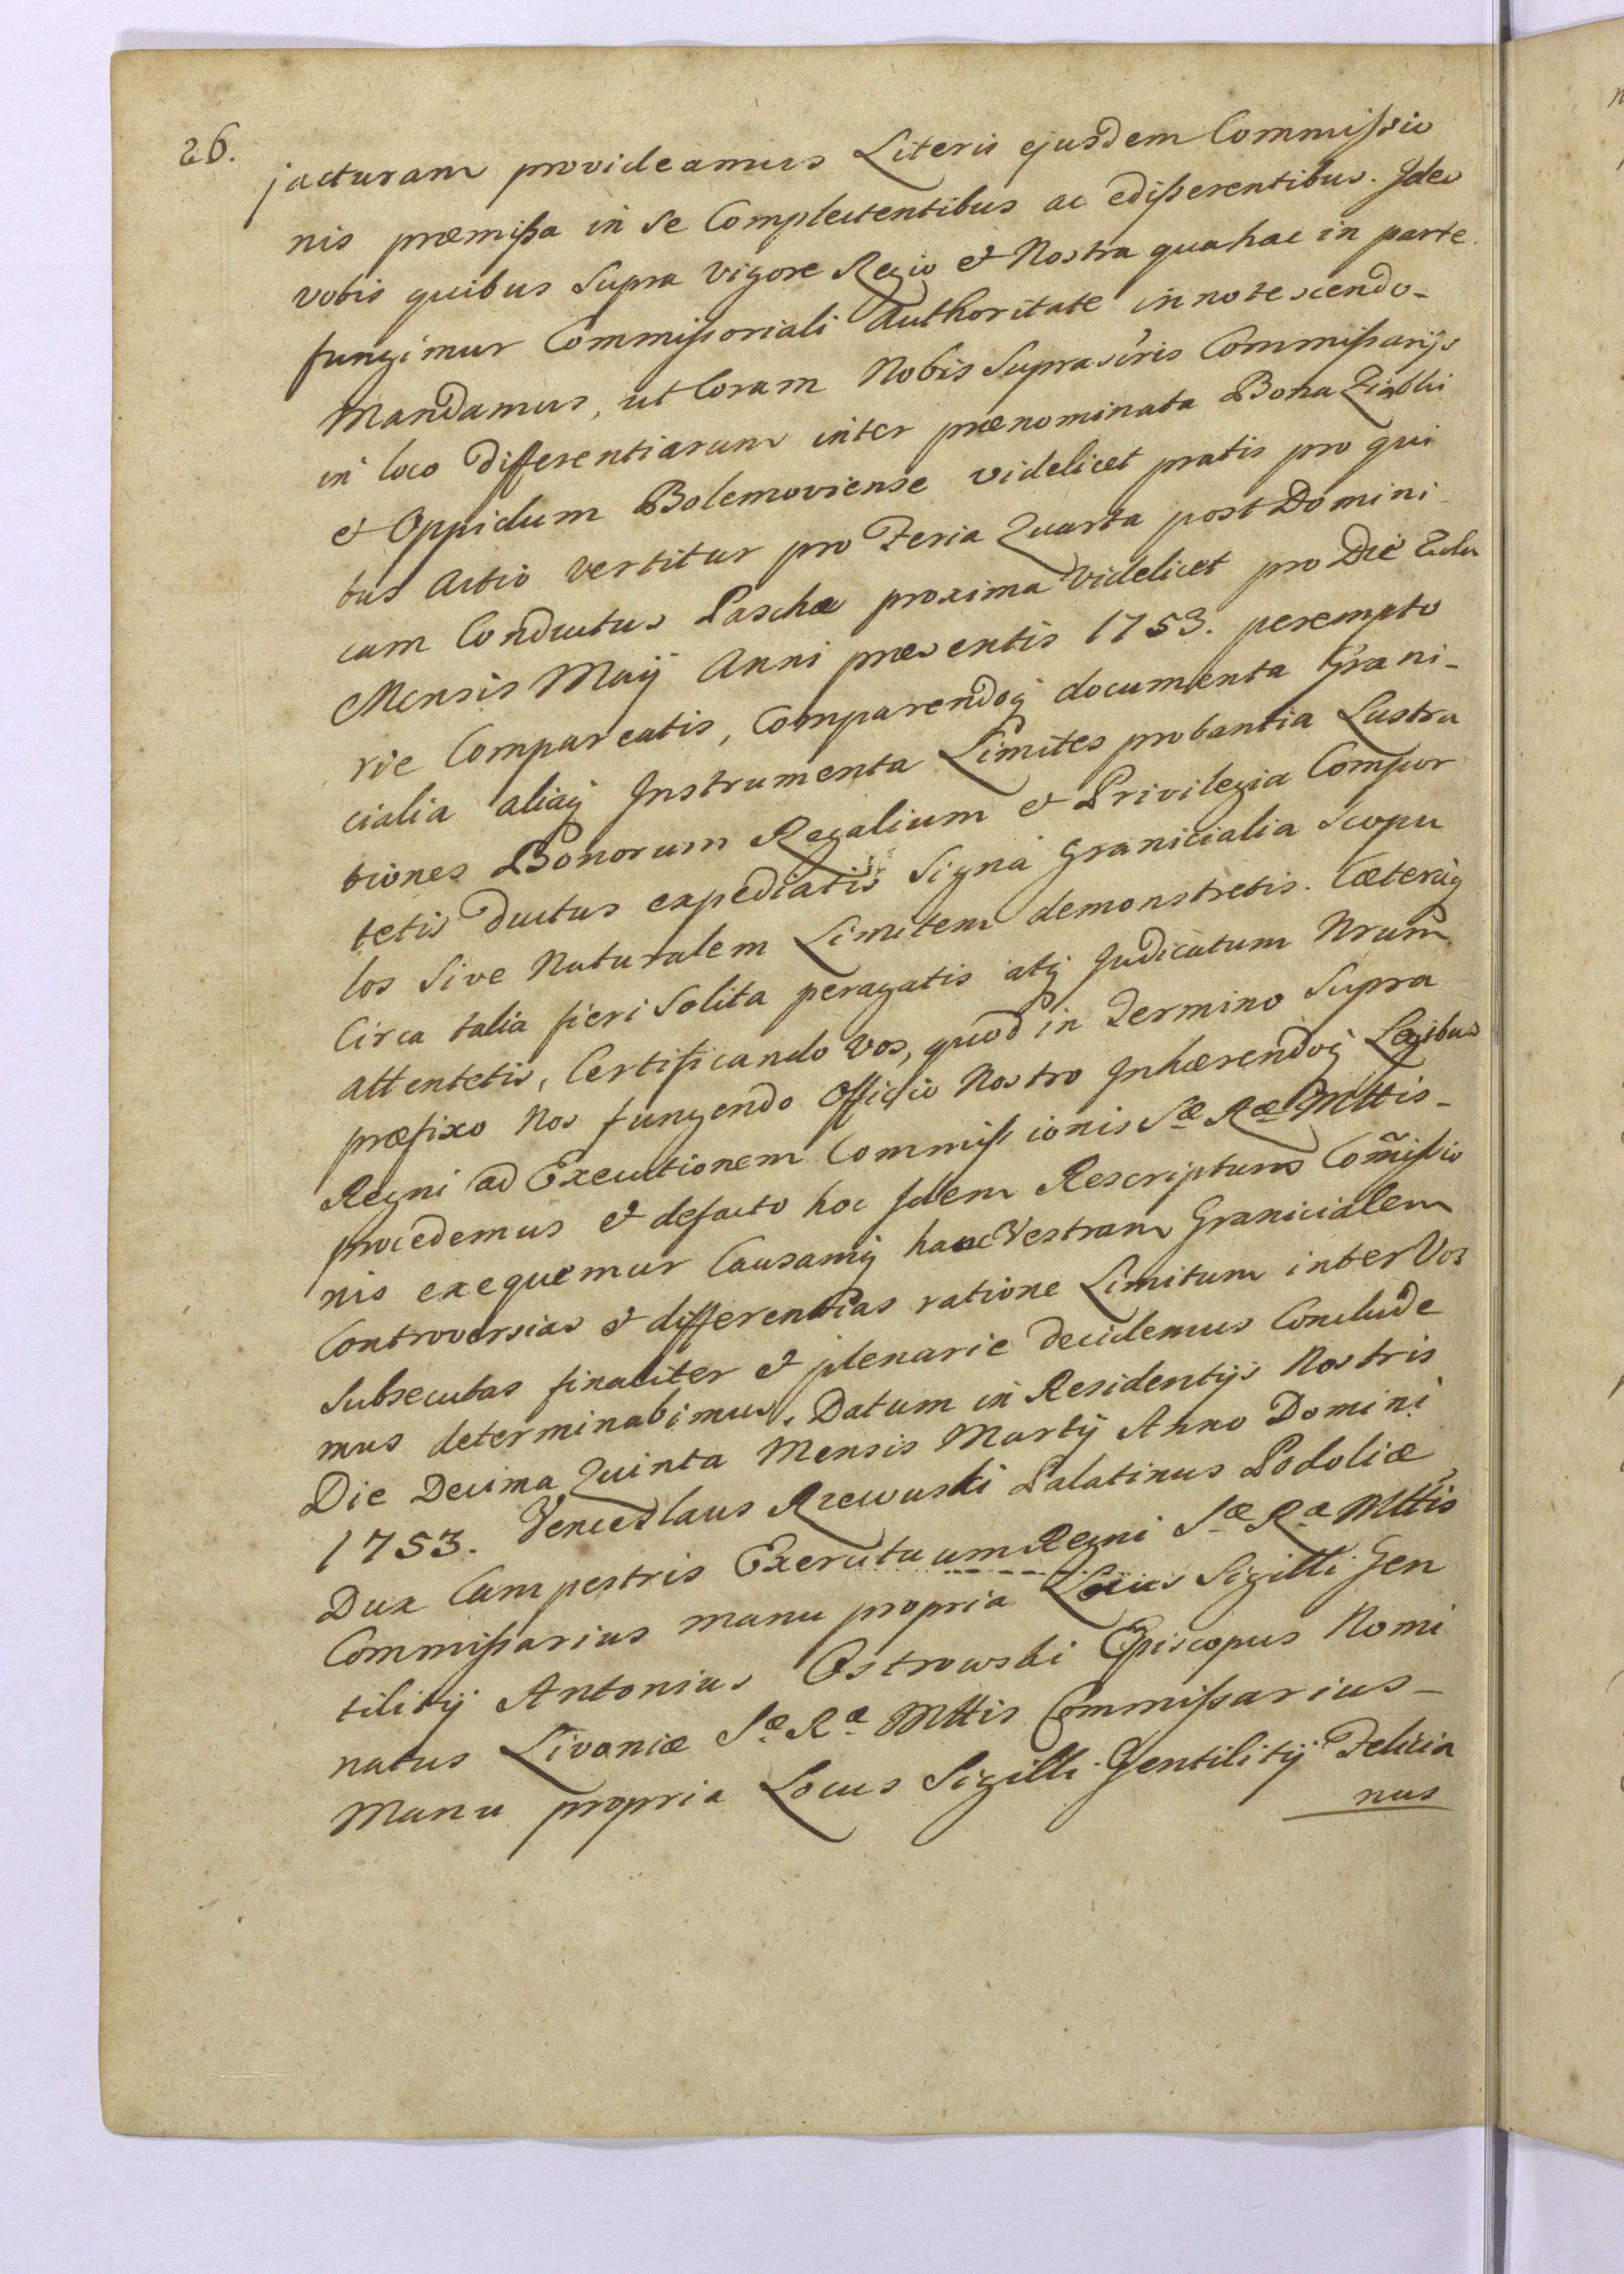 26.
jacturam provideamus Literis ejusdem Commissio
nis præmissa in se Complectentibus ac edisserentibus. Ideo
vobis quibus supra vigore Regio et Nostra qua hac in parte
fungimur Commissoriali Authoritate innotescendo-
Mandamus, ut Coram Nobis Commissarijs
in loco differentiarum inter prænominata Bona Ziąbki
et Oppidum Bolemoviense videlicet pratis pro qui
bus Actio vertitur pro Feria Quarta post Domini-
cam Conductus Paschæ proxima videlicet pro Die
Mensis Maij Anni præsentis 1753. perempto
rie Compareatis, Comparendoq documenta Grani-
cialia aliaq Instrumenta Limites probantia Lustra
tiones Bonorum Regalium et Privilegia Compor
tetis Ductus expediatis Signa Granicialia Scopu
los Sive Naturalem Limitem demonstretis. Cæteraq
Circa talia fieri Solita peragatis atq Judicatum Nrum
attentetis, Certificando Vos, quod in Termino Supra
præfixo Nos fungendo Officio Nostro Inhærendoq Legibus
Regni ad Executionem Commissionis Sæ Ræ Mttis-
procedemus et defacto hoc Idem Rescriptum Com̃issio
nis exequemur Causamq hanc Vestram Granicialem
Controversias et differentias ratione Limitum inter Vos
Subsecutas finaliter et plenarie decidemus Conclude
mus determinabimus. Datum in Residentijs Nostris
Die Decima Quinta Mensis Martij Anno Domini
1753. Venceslaus Rzewuski Palatinus Podoliæ
Dux Campestris Exercituum Regni Sæ Ræ Mttis
Commissarius manu propria Locus Sigilli Gen
tilitij Antonius Ostrowski Episcopus Nomi
natus Livoniæ Sæ Ræ Mttis Commissarius-
Manu propria Locus Sigilli Gentilitij Felicia
nus